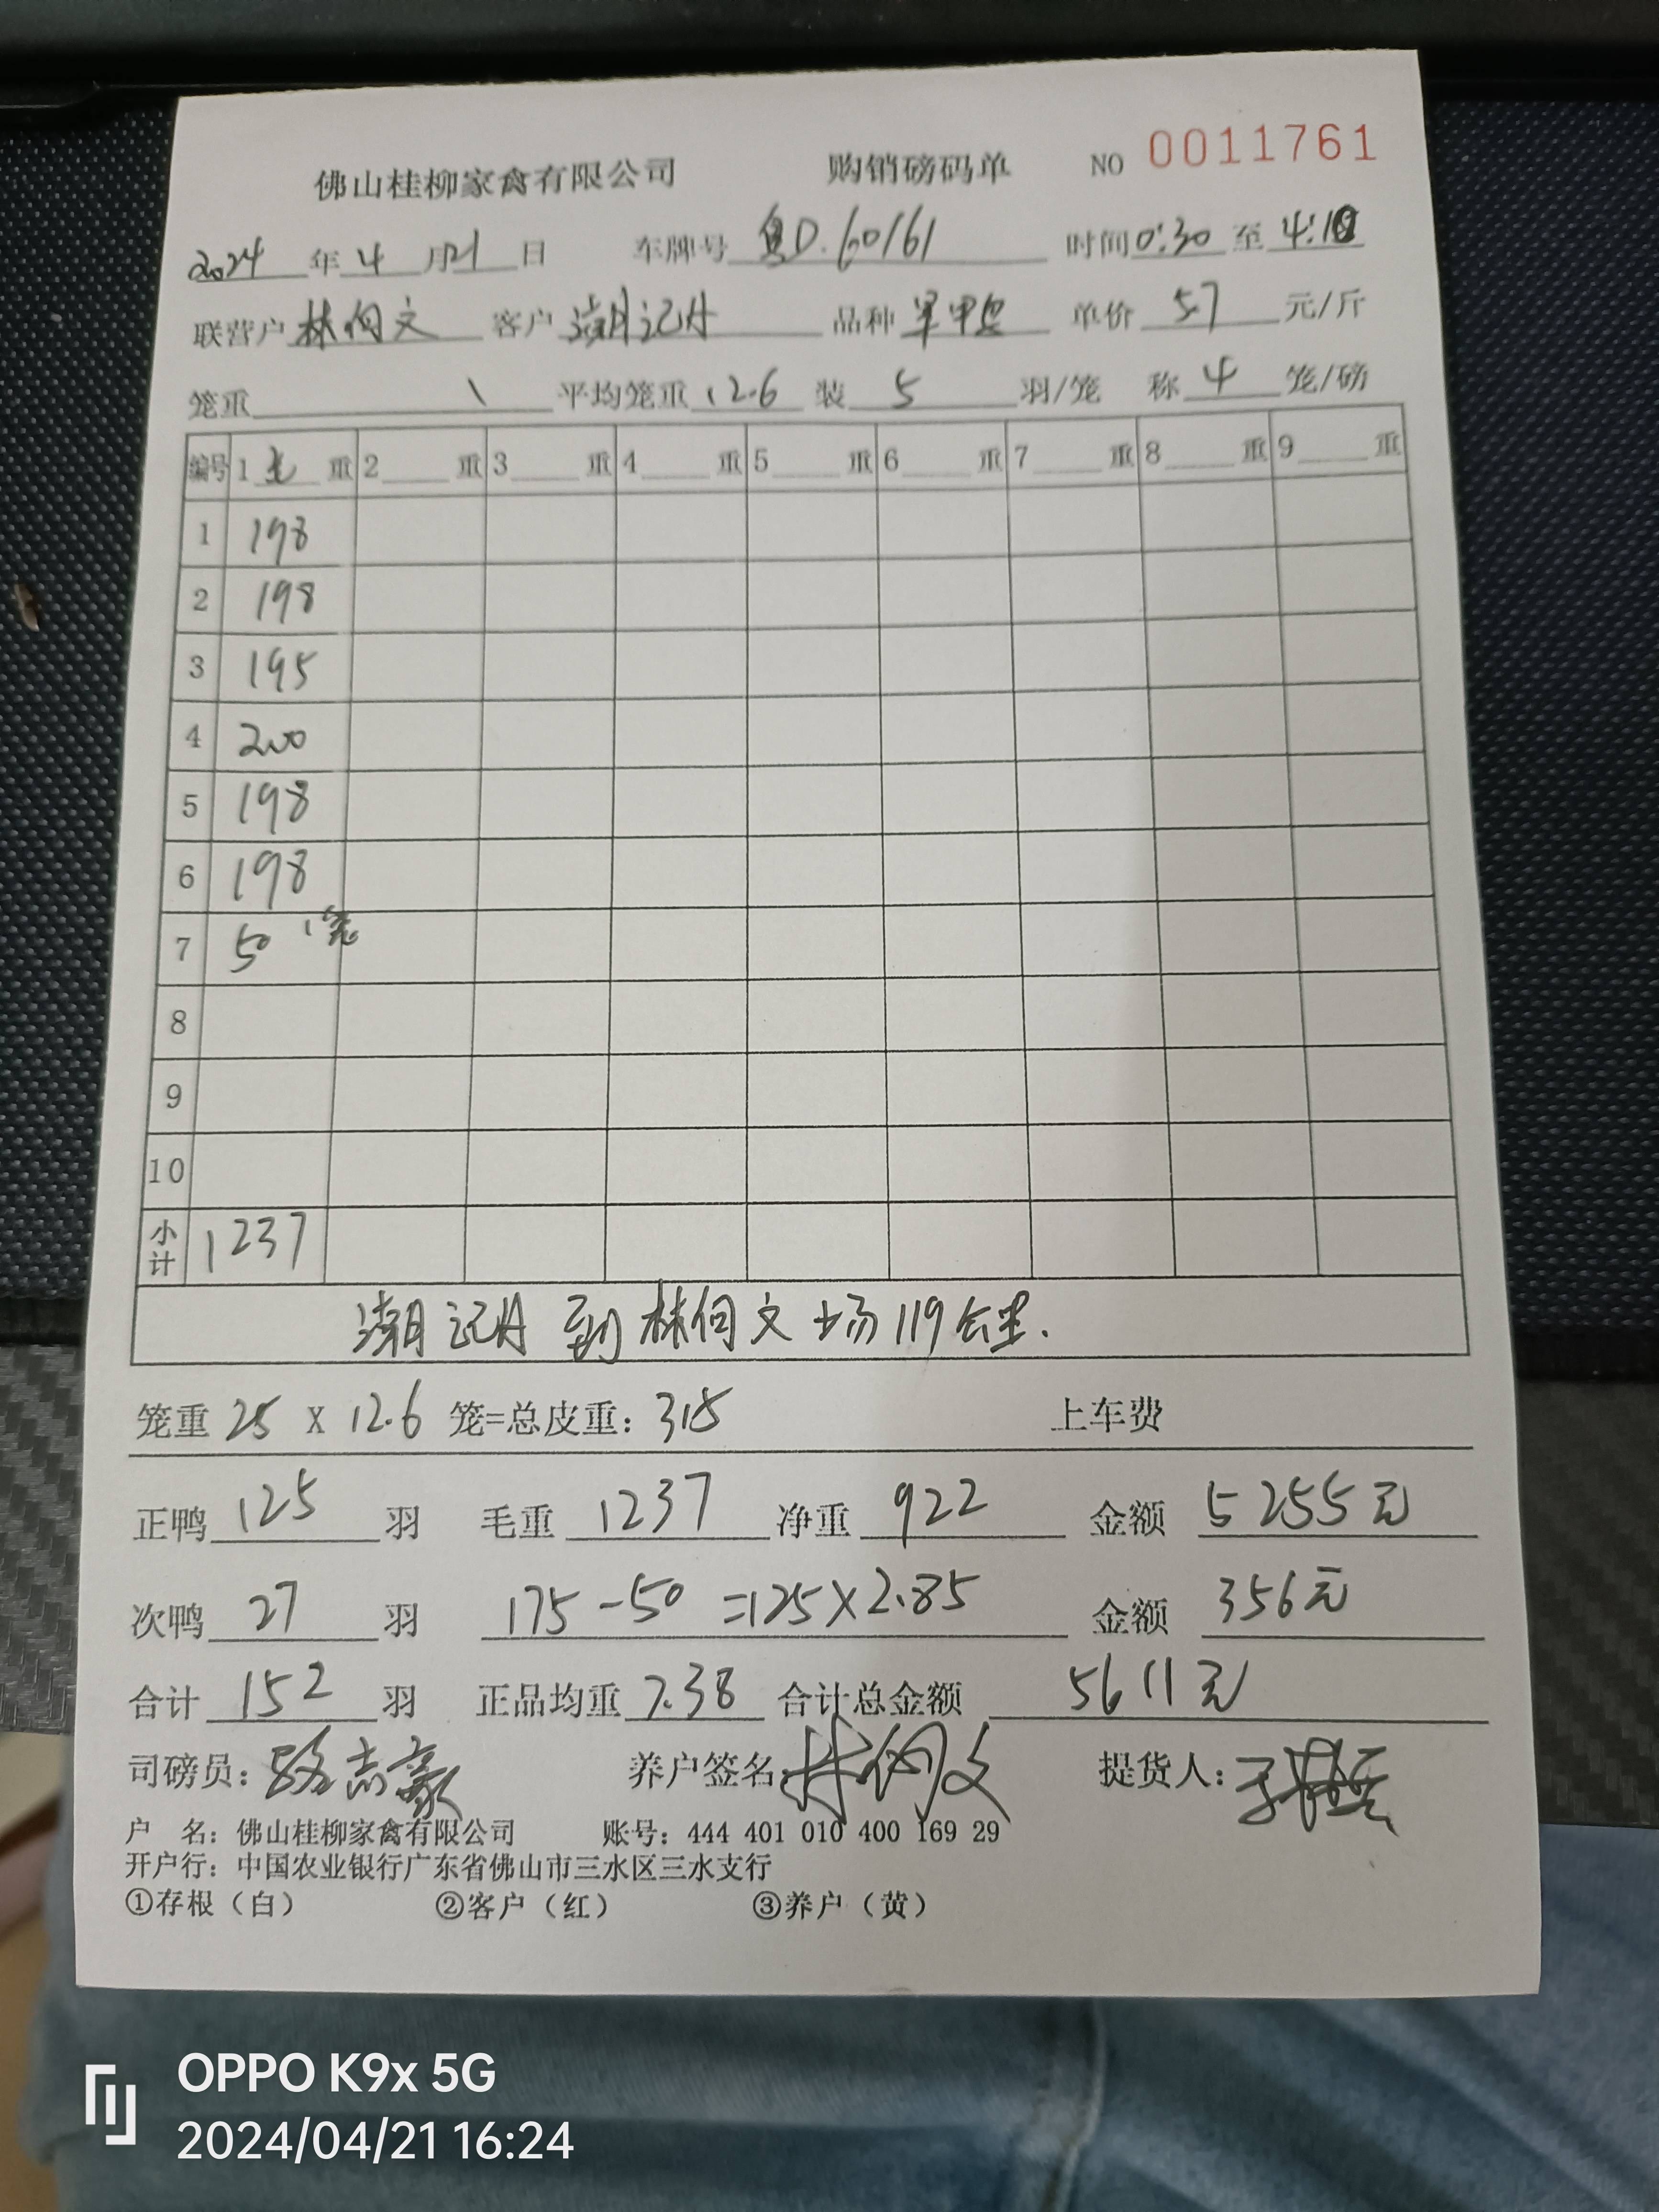 佛山桂柳家禽有限公司 购销磅码单 NO 0011761
2024 年 4 月 21 日 车牌号 粤D.60161 时间 0:30 至 4:10
联营户 林伺文 客户 潮记片 品种 单价 5.7 元/斤
笼重 \ 平均笼重 12.6 装 5 羽/笼 称 4 笼/磅
编号 1 毛 重 2 重 3 重 4 重 5 重 6 重 7 重 8 重 9 重
1 198
2 198
3 195
4 200
5 198
6 198
7 50 1笼
8
9
10
小计 1237
潮记片 到 林伺文 场 119公里.
笼重 25 X 12.6 笼=总皮重: 315 上车费
正鸭 125 羽 毛重 1237 净重 922 金额 5255元
次鸭 27 羽 175-50=125×2.85 金额 356元
合计 152 羽 正品均重 7.38 合计总金额 5611元
司磅员: 志豪 养户签名: 林伺文 提货人:
户 名: 佛山桂柳家禽有限公司 账号: 444 401 010 400 169 29
开户行: 中国农业银行广东省佛山市三水区三水支行
①存根（白） ②客户（红） ③养户（黄）
OPPO K9x 5G
2024/04/21 16:24